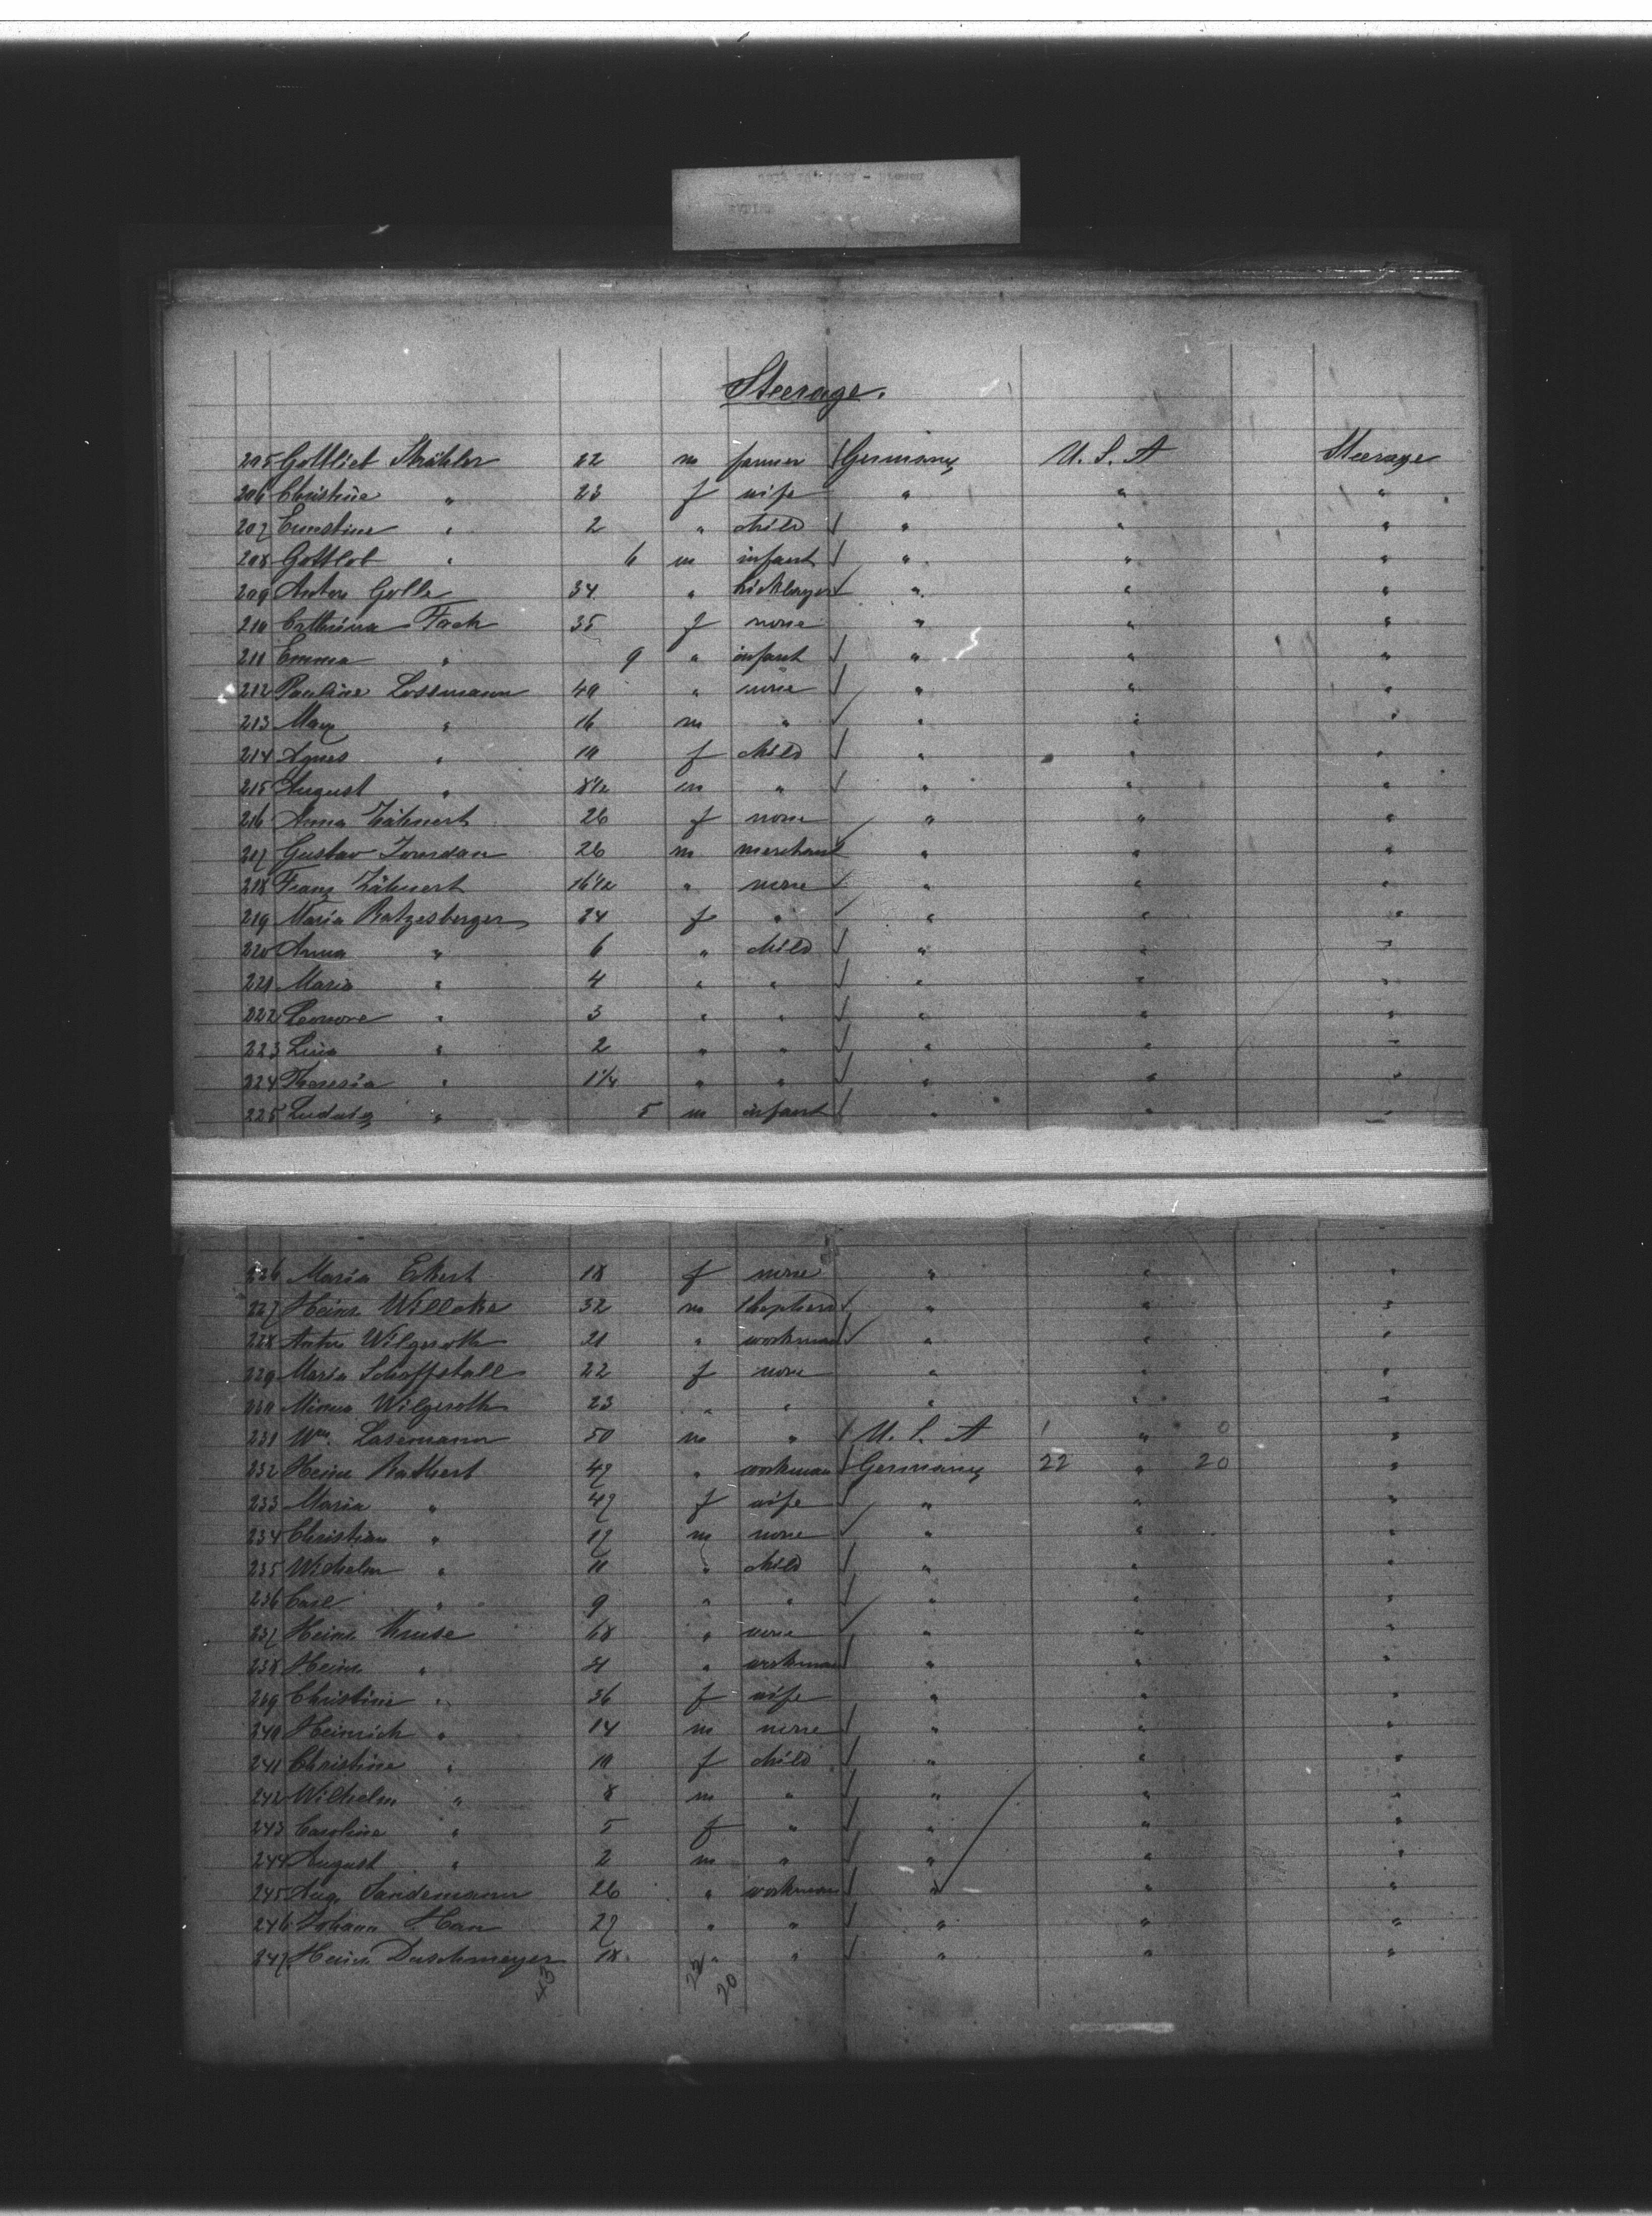 Steerage.
205 Gottlieb Strähler 22 m farmer Germany U. S. A Steerage
206 Christine " 23 f wife " " "
207 Ernstine " 2 " child " " "
208 Gottlob " 6 m infant " " "
209 Anton Golle 34 " " " "
210 Cathrina Fach 35 f none " " "
211 Emma " 9 " infant " " "
212 Pauline Lossmann 40 " none " " "
213 Max " 16 m " " " "
214 Agnes " 10 f child " " "
215 August " 8 1/2 m " " " "
216 Anna Zähnert 26 f none " " "
217 Gustav Jourdan 26 m merchant " " "
218 Franz Zähnert 16 1/2 " none " " "
219 Maria Ratzesberger 24 f " " " "
220 Anna " 6 " child " " "
221 Maria " 4 " " " " "
222 Leonore " 3 " " " " "
223 Lina " 2 " " " " "
224 Theresia " 1 1/4 " " " " "
225 Ludwig " 5 m infant " " "
226 Maria Ekert 18 f none " " "
227 Heinr. Willeke 32 m shepherd " " "
228 Anton Wilgeroth 21 " workman " " "
229 Maria Schoffstall 22 f none " " "
230 Minna Wilgeroth 23 " " " " "
231 Wm. Lasemann 50 m " U. S. A 1 " 0 "
232 Heinr Rathert 47 " workman Germany 22 " 20 "
233 Maria " 47 f wife " " "
234 Christian " 17 m none " " "
235 Wilhelm " 11 " child " " "
236 Carl " 9 " " " " "
237 Heinr. Kruse 68 " none " " "
238 Heinr. " " workman " " "
239 Christine " 36 f wife " " "
240 Heinrich " 14 m none " " "
241 Christine " 10 f child " " "
242 Wilhelm " 8 m " " " "
243 Caroline " 5 f " " " "
244 August " 2 m " " " "
245 Aug. Sandemann 26 " workman " " "
246 Johann Han 27 " " " " "
247 Heinr. Duschmeyer 18 " " " " "
43 23 20